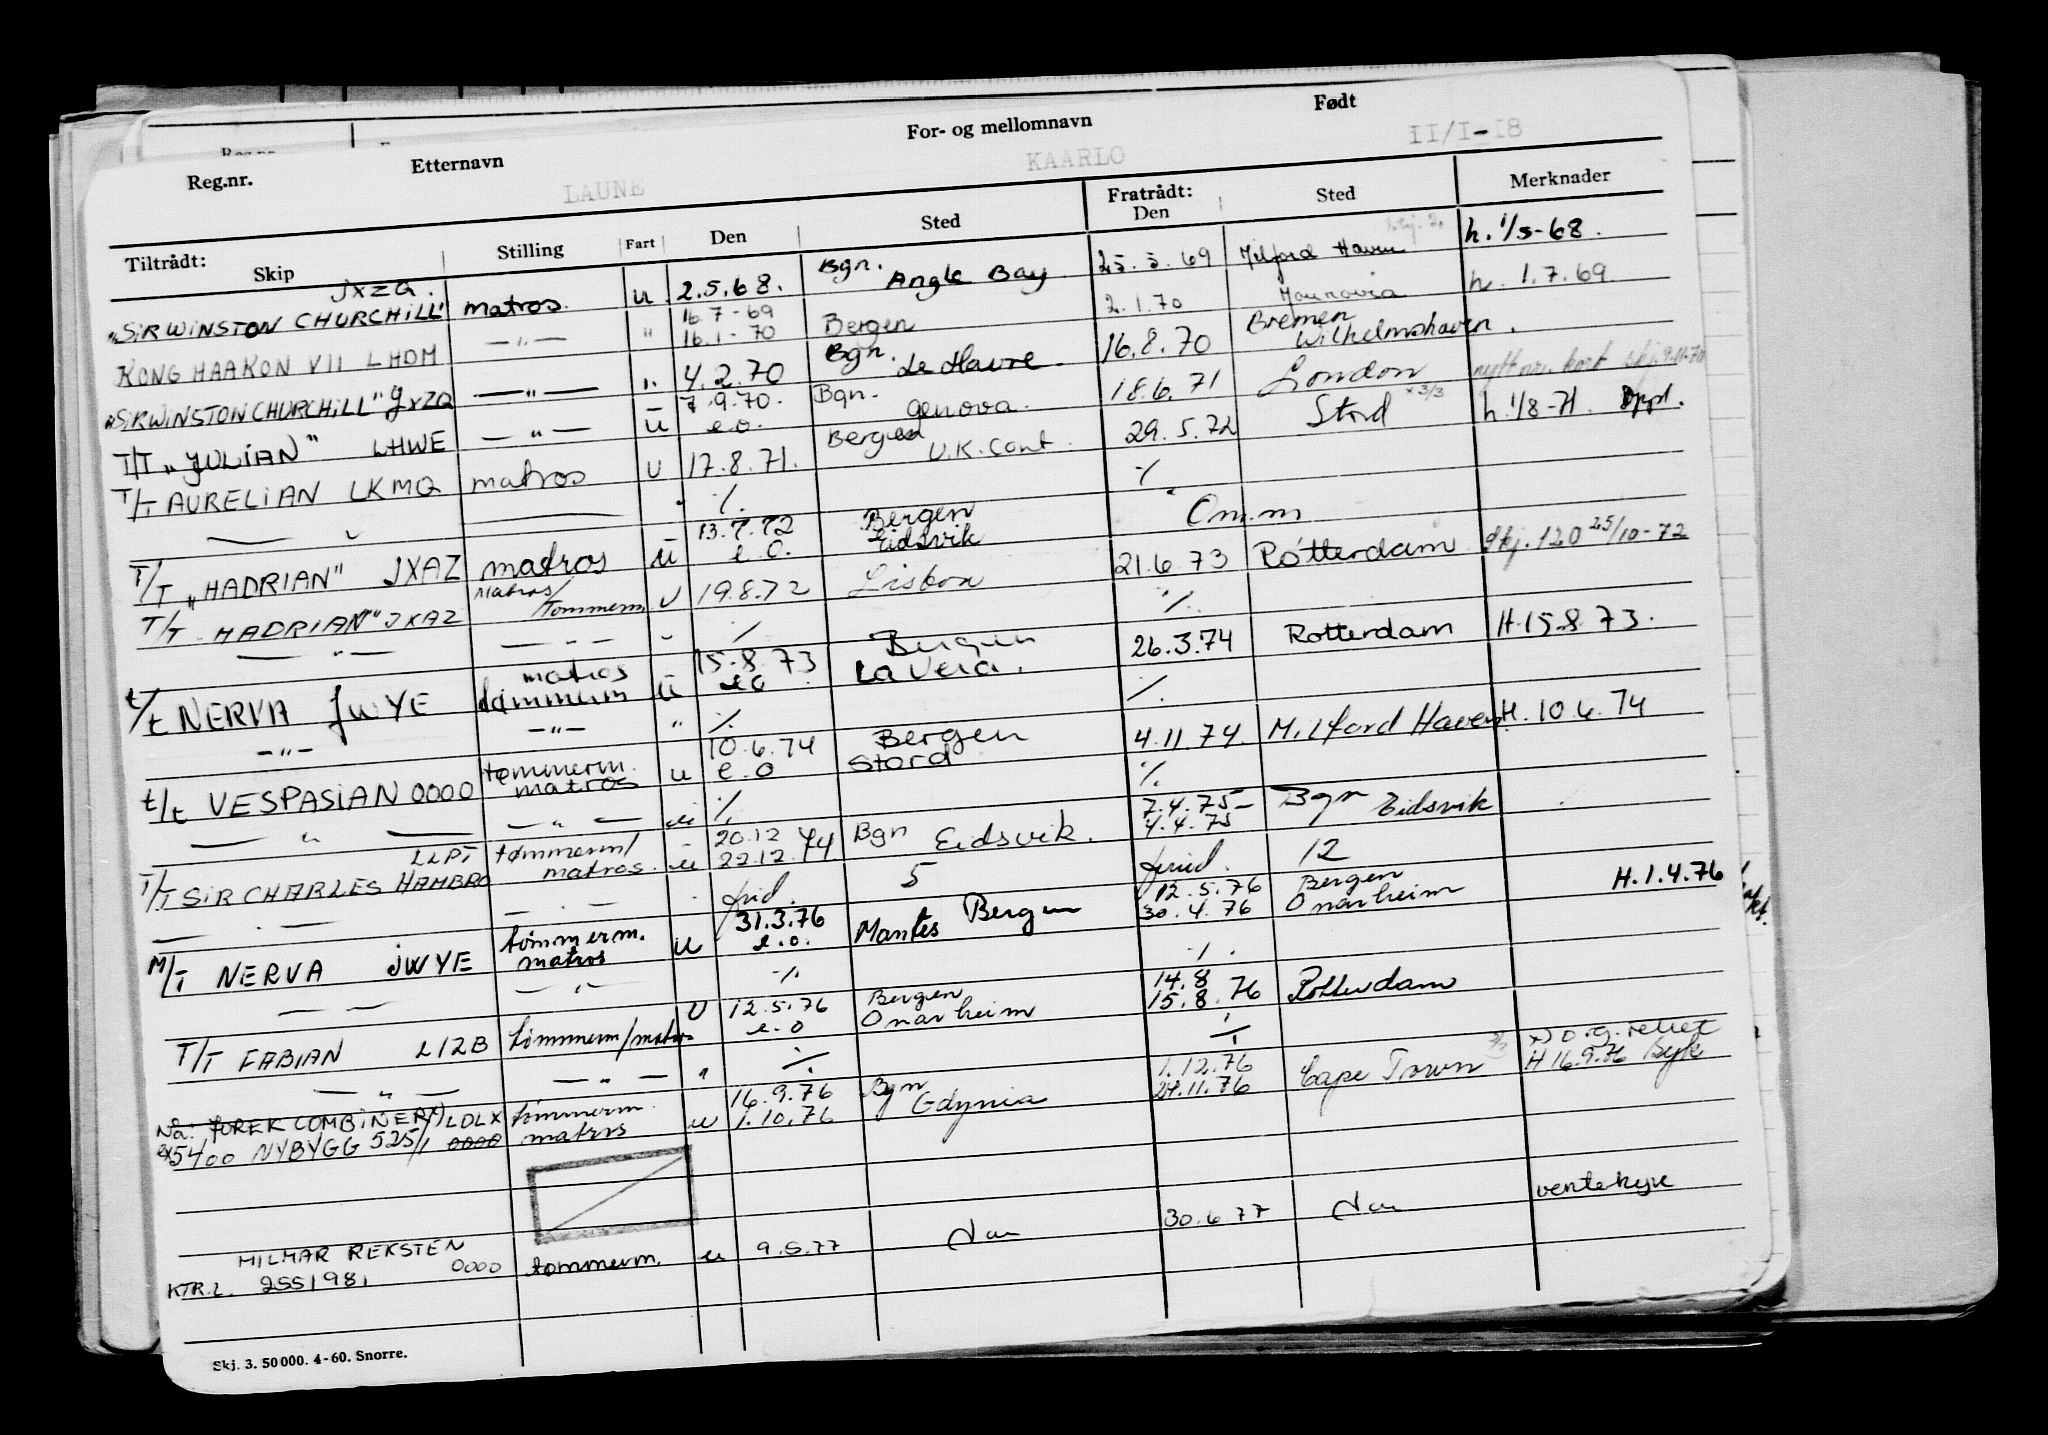 Reg.nr. Etternavn For- og mellomnavn Født
LAUNE KAARLO II/I-I8
Tiltrådt: Skip Stilling Fart Den Sted Fratrådt: Den Sted Merknader
JXZQ. Bgn.
"SIR WINSTON CHURCHILL" matros. u 2.5.68. Angle Bay 25.5.69 Milford Haven h. 1/5-68.
16.7-69
KONG HAAKON VII LHDM —"— " 16.1-70 Bergen 2.1.70 h. 1.7.69.
Bgn. Bremen
"SIR WINSTON CHURCHILL" JXZQ —"— " 4.2.70 Le Havre. 16.8.70 Wilhelmshaven.
7.9.70. Bgn.
T/T "JULIAN" LHWE —"— u e.o. Genova. 18.6.71 London
Bergen
T/T AURELIAN LKMQ matros U 17.8.71. U.K. Cont. 29.5.72 Stord h. 1/8-71.
—"— ·/. ·/.
13.7.72 Bergen
T/T "HADRIAN" JXAZ matros u e.o. Eidsvik Om.m
matros/
T/T HADRIAN" JXAZ Tømmerm U 19.8.72 Lisbon 21.6.73 Rotterdam Skj. 120 25/10-72
—"— —"— " ·/. ·/.
matros 15.8.73 Bergen
t/t NERVA JWYE tømmerm u eo LaVera. 26.3.74 Rotterdam H.15.8.73.
—"— —"— " ·/. ·/.
tømmerm. 10.6.74 Bergen
t/t VESPASIAN 0000 matros u e.o Stord 4.11.74. Milford Haven H. 10.6.74
—"— —"— ·/. ·/.
LLPT tømmerm/ 20.12 Bgn 7.4.75- Bgn
T/T SIR CHARLES HAMBRO matros. u 22.12.74 Eidsvik. 4.4.75 Eidsvik
5 12
tømmerm. 31.3.76 Bergen 12.5.76 Bergen
M/T NERVA JWYE matros u e.o. Mantes 30.4.76 Onarheim H.1.4.76
—"— —"— ·/. ·/.
12.5.76 Bergen 14.8
T/T FABIAN LIZB tømmerm/matros U e.o Onarheim 15.8.76 Rotterdam
—"— —"— " ·/. ·/.
Nå: JOREK COMBINER x) LDLX tømmerm. 16.9.76 Bgn 1.12.76 x) O.g. relief
ex 5400 NYBYGG 525/1 0000 matros u 1.10.76 Gdynia 24.11.76 Cape Town H 16.9.76
HILMAR REKSTEN
KTR.L. 2551981 0000 tømmerm. u 9.5.77 30.6.77 ventehyre
Skj. 3. 50 000. 4-60. Snorre.